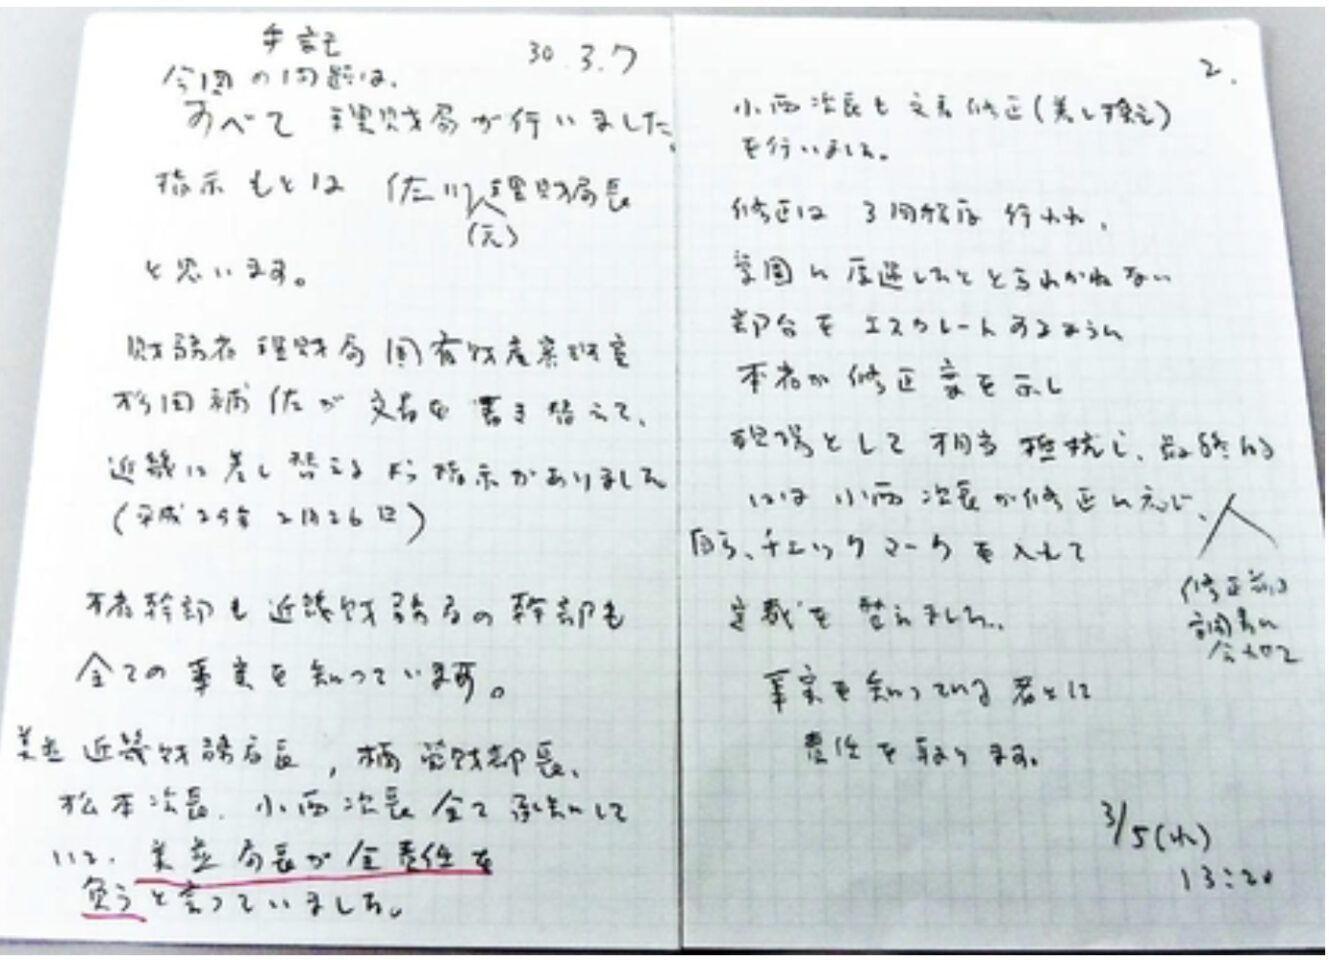 手記
30.3.7
今回の問題は、
すべて理財局が行いました。
指示もとは 佐川理財局長
(元)
と思います。
財務省理財局国有財産業務室
杉田補佐が文書を書き替えて、
近畿に差し替えるよう指示がありました
(平成29年2月26日)
本省幹部も近畿財務局の幹部も
全ての事実を知っています。
美並近畿財務局長、楠管財部長、
松本次長、小西次長全て承知して
いて、美並局長が全責任を
負うと言っていました。
2.
小西次長も文書修正(差し換え)
を行いました。
修正は3回程度行われ、
学園に厚遇したととられかねない
部分を エスカレートするように
本省が修正案を示し
現場として相当抵抗し、最終的
には小西次長が修正に応じ、
自ら、チェックマークを入れて
修正前の
調書に
合わせて
定裁を整えました。
事実を知っている者として
責任を取ります。
3/5(水)
13:20